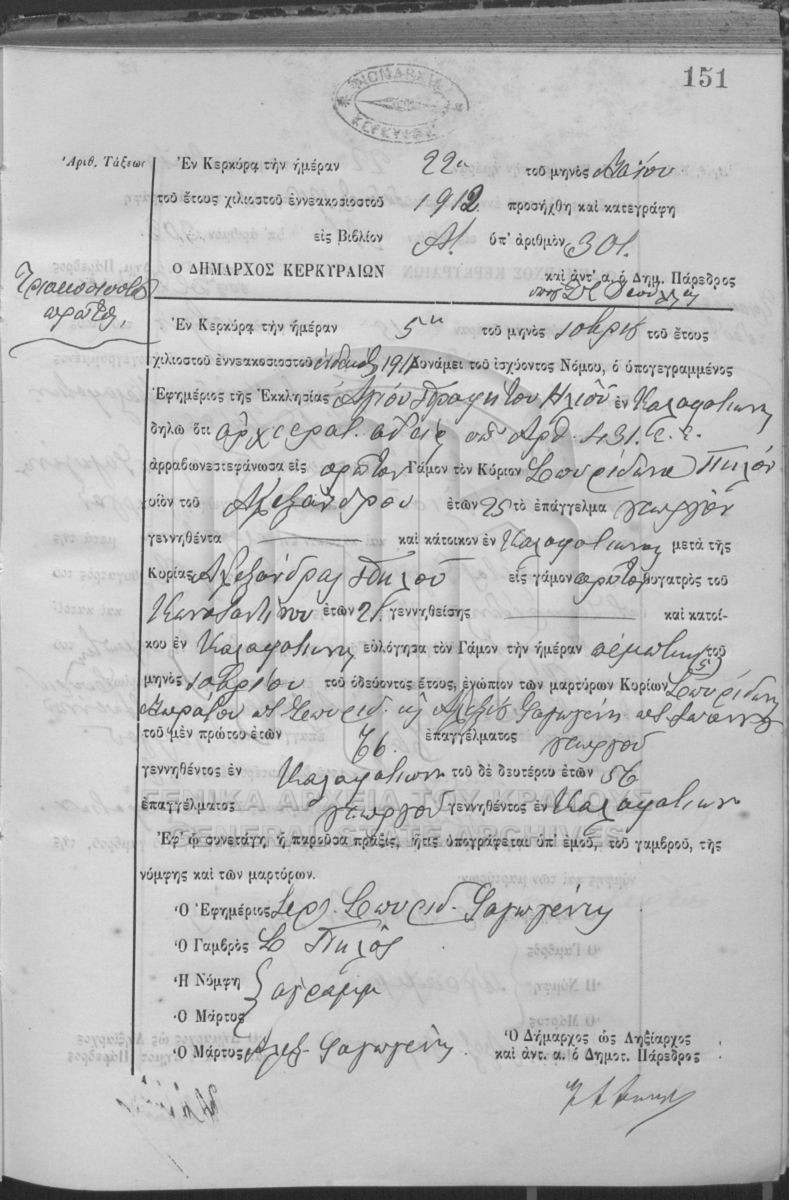 151
ΝΟΜΑΡΧΕΙΑ ΚΕΡΚΥΡΑΣ
Ἀριθ. Τάξεως
Ἐν Κερκύρᾳ τὴν ἡμέραν 22α τοῦ μηνὸς Μαΐου
τοῦ ἔτους χιλιοστοῦ ἐννεακοσιοστοῦ 1912 προσήχθη καὶ κατεγράφη
εἰς Βιβλίον Α'. ὑπ' ἀριθμὸν 301.
Ο ΔΗΜΑΡΧΟΣ ΚΕΡΚΥΡΑΙΩΝ καὶ ἀντ' α. ὁ Δημ. Πάρεδρος
Τριακοσιοστὴ
πρώτη,
Ἐν Κερκύρᾳ τὴν ἡμέραν 5ην τοῦ μηνὸς τοῦ ἔτους
χιλιοστοῦ ἐννεακοσιοστοῦ ἑνδεκάτου 1911 Δυνάμει τοῦ ἰσχύοντος Νόμου, ὁ ὑπογεγραμμένος
Ἐφημέριος τῆς Ἐκκλησίας Ἁγίου Προφήτου Ἠλιοῦ ἐν Καλαφατιώνῃ
δηλῶ ὅτι ἀρχιερατ. ἀδείᾳ ὑπ' Ἀρθ. 431. ἐ. ἔ.
ἀρραβωνεστεφάνωσα εἰς πρῶτον Γάμον τὸν Κύριον Σπυρίδωνα Πηλὸν
υἱὸν τοῦ Ἀλεξάνδρου ἐτῶν 25 τὸ ἐπάγγελμα γεωργὸν
γεννηθέντα καὶ κάτοικον ἐν Καλαφατιώνῃ μετὰ τῆς
Κυρίας Ἀλεξάνδρας Πηλοῦ εἰς γάμον πρῶτον θυγατρὸς τοῦ
Κωνσταντίνου ἐτῶν 21 γεννηθείσης καὶ κατοί-
κου ἐν Καλαφατιώνῃ εὐλόγησα τὸν Γάμον τὴν ἡμέραν πέμπτην 5 τοῦ
μηνὸς τοῦ ὁδεύοντος ἔτους, ἐνώπιον τῶν μαρτύρων Κυρίων Σπυρίδων
Σπυρίδ. Ἰωάννου
τοῦ μὲν πρώτου ἐτῶν 76. ἐπαγγέλματος γεωργοῦ
γεννηθέντος ἐν Καλαφατιώνῃ τοῦ δὲ δευτέρου ἐτῶν 56
ἐπαγγέλματος γεωργοῦ γεννηθέντος ἐν Καλαφατιώνῃ
ΓΕΝΙΚΑ ΑΡΧΕΙΑ ΤΟΥ ΚΡΑΤΟΥΣ
GENERAL STATE ARCHIVES
Ἐφ' ᾧ συνετάγη, ἡ παροῦσα πρᾶξις, ἥτις ὑπογράφεται ὑπ' ἐμοῦ, τοῦ γαμβροῦ, τῆς
νύμφης καὶ τῶν μαρτύρων.
Ὁ Ἐφημέριος Ἱερ. Σπυρίδ.
Ὁ Γαμβρὸς Σ Πηλὸς
Ἡ Νύμφη
ἀγράμμ
Ὁ Μάρτυς
Ὁ Μάρτυς Ἀλεξ.
Ὁ Δήμαρχος ὡς Ληξίαρχος
καὶ ἀντ. α. ὁ Δημοτ. Πάρεδρος